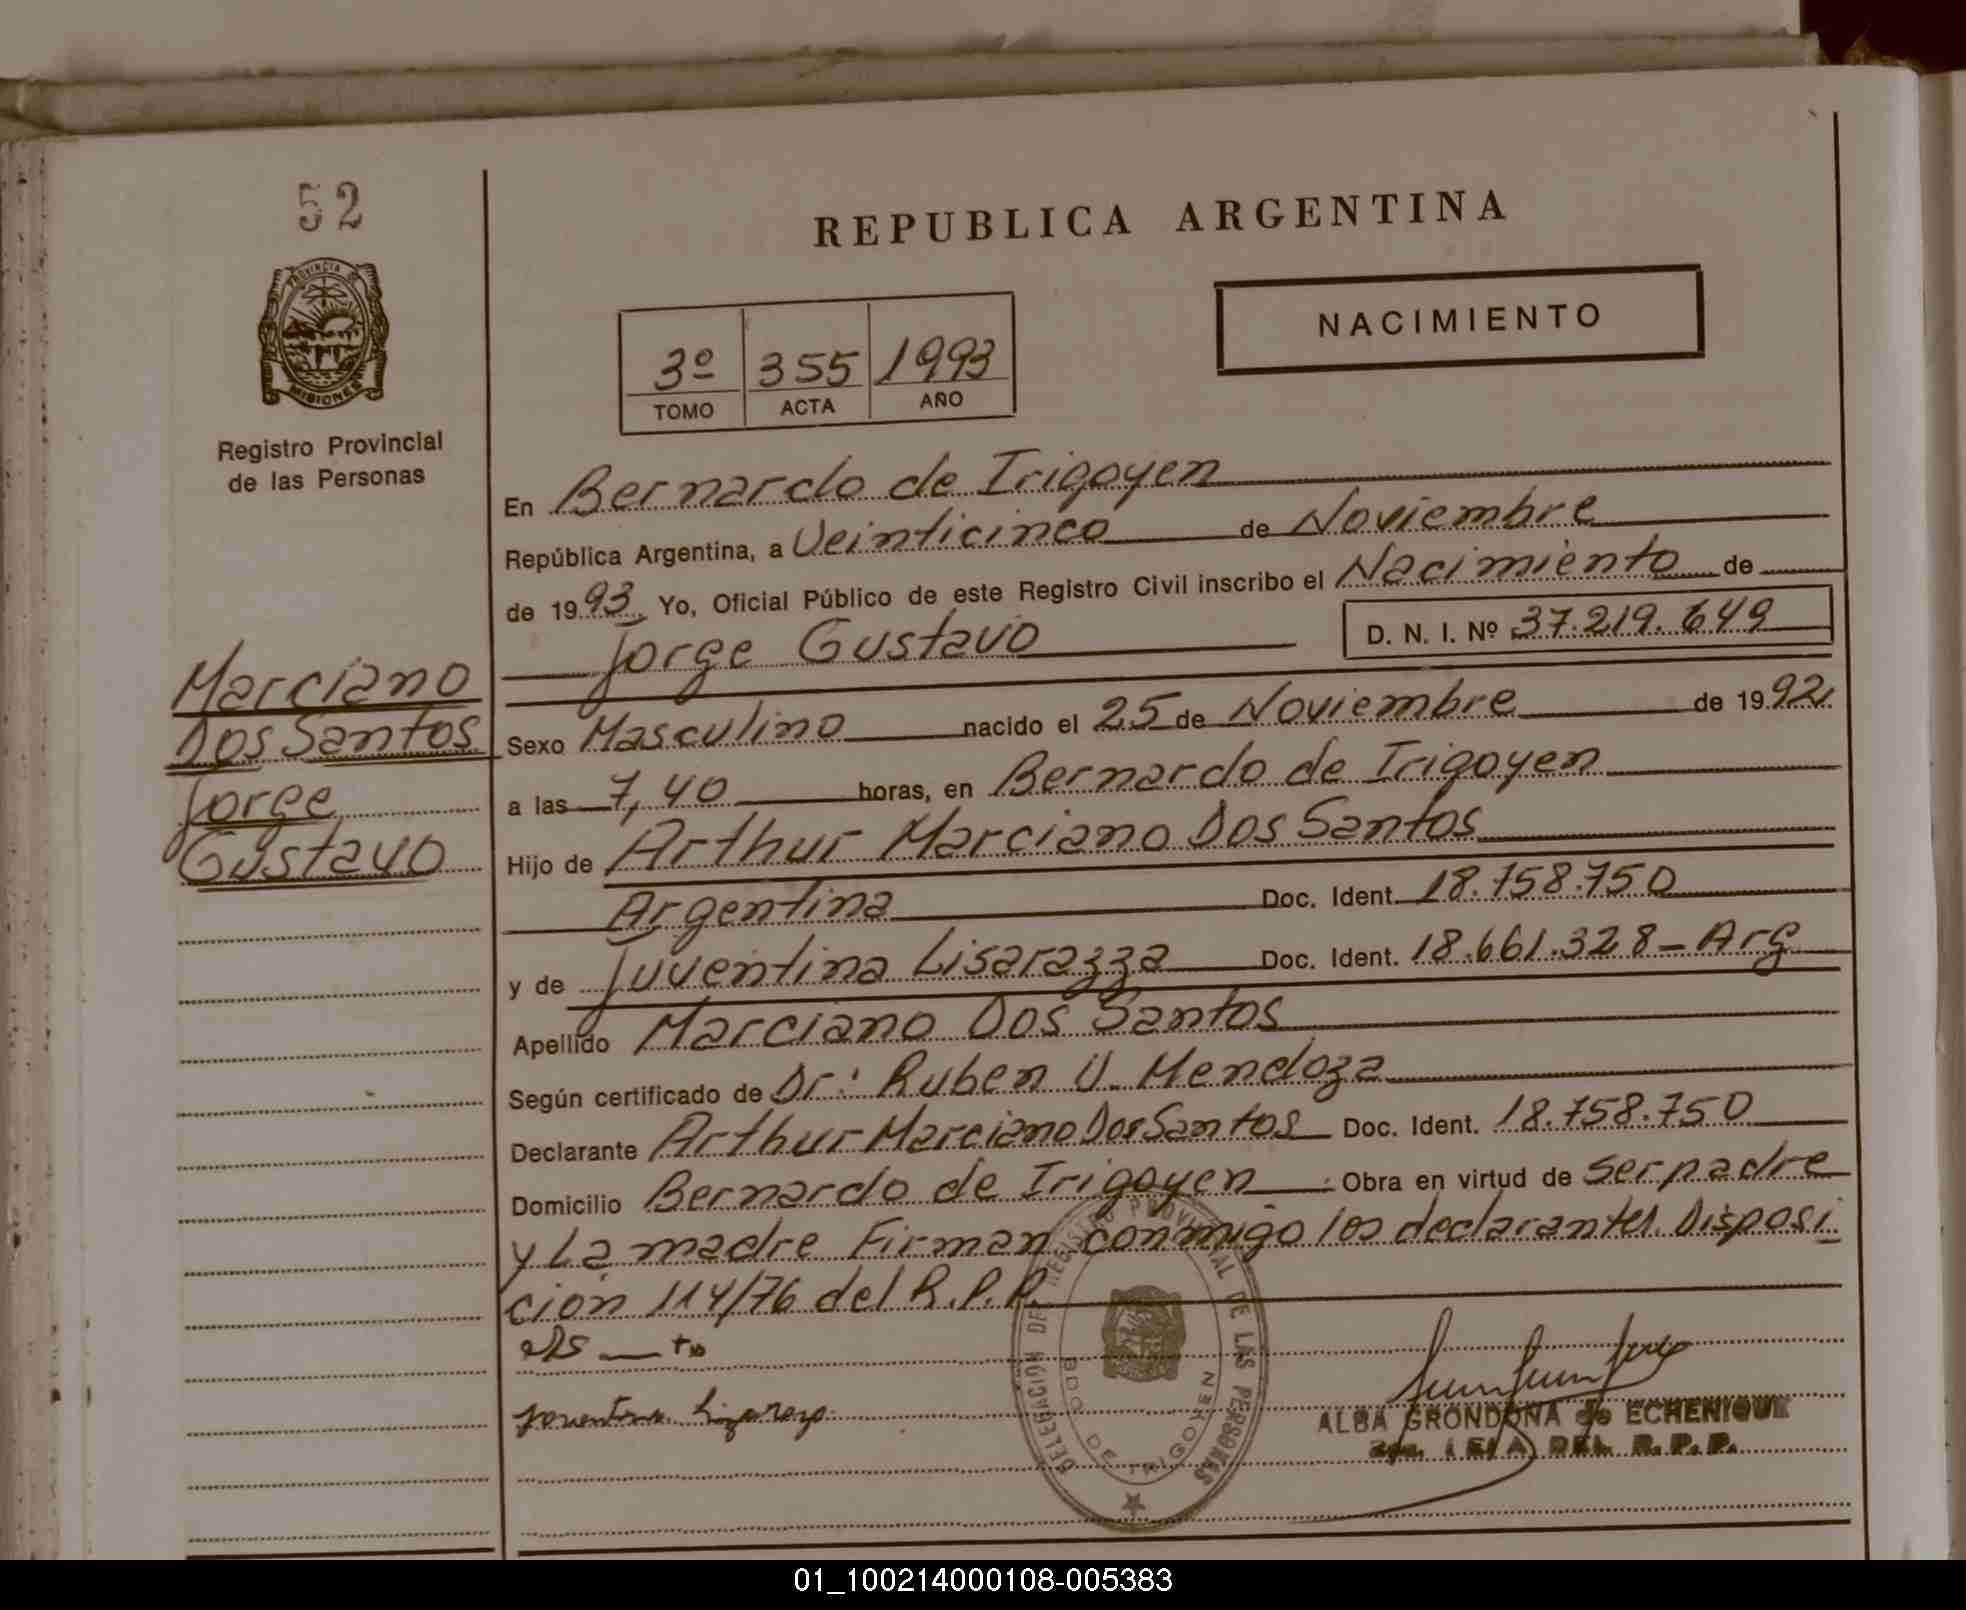 52
REPUBLICA ARGENTINA
PROVINCIA DE
MISIONES
NACIMIENTO
3º 355 1993
TOMO ACTA AÑO
Registro Provincial
de las Personas
En Bernardo de Irigoyen
República Argentina, a Veinticinco de Noviembre
de 1993. Yo, Oficial Público de este Registro Civil inscribo el Nacimiento de
Jorge Gustavo D. N. I. Nº 37.219.649
Marciano
Dos Santos
Jorge
Gustavo
Sexo Masculino nacido el 25 de Noviembre de 1992.
a las 7,40 horas, en Bernardo de Irigoyen
Hijo de Arthur Marciano Dos Santos
Argentina Doc. Ident. 18.758.750
y de Juventina Lisarazza Doc. Ident. 18.661.328-Arg
Apellido Marciano Dos Santos
Según certificado de Dr: Ruben V. Mendoza
Declarante Arthur Marciano Dos Santos Doc. Ident. 18.758.750
Domicilio Bernardo de Irigoyen Obra en virtud de ser padre
y La madre Firman conmigo los declarantes. Disposi
ción 114/76 del R.P.P.
DELEGACION DEL REGISTRO PROVINCIAL DE LAS PERSONAS
BDO. DE IRIGOYEN
ALBA GRONDONA de ECHENIQUE
DEL R.P.P.
01_100214000108-005383